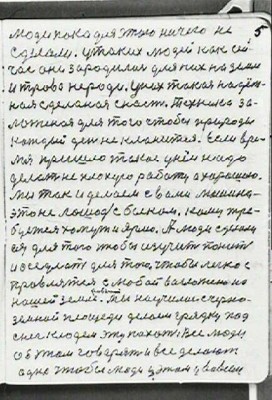 5
люди пока для этого ничего не
сделали. У таких людей как сей-
час они зародились для них на земли
и трава не роди. У них такая надём-
ная сделаная снасть. Техника за-
ложеная для того чтобы природы
каждый день не кланится. Если вре-
мя пришло такое у нём надо
делат не плохую работу а хорошою.
Мы так и делаем с вами машина-
это не лошадь с быком. Кому тре-
буется хомут и ярмо. А люди сделали
ся для того чтобы изучить понят
и осознат для того, чтобы легко с
правлятся с любой
нашей земле. Мы научились с черно-
земной площеди делаем грядку под
снег кладем эту пахот. Все люди
об этом говорят и все делают
одно чтобы люди в этом и вовсем